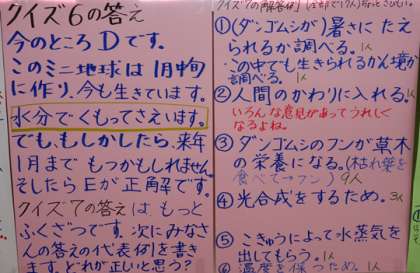 クイズ6の答え
今のところDです。
このミニ地球は1月中旬
に作り、今も生きています。
水分でくもってさえいます。
でも、もしかしたら、来年
1月までもつかもしれません。
そしたらEが正解です。
クイズ7の答えは、もっと
ふくざつです。次にみなさ
んの答えの代表例を書き
ます。どれが正しいと思う?
①(ダンゴムシが)暑さにたえ
られるか調べる。1人
この中でも生きられるかん境か
調べる。1人
②人間のかわりに入れる。1人
いろんな意見があってうれしく
なるよね。
③ダンゴムシのフンが草木
の栄養になる。(枯れ葉を
食べて→フン) 9人
④光合成をするため。3人
⑤こきゅうによって水蒸気を
出してもらう。1人
⑥温度を保つため。1人